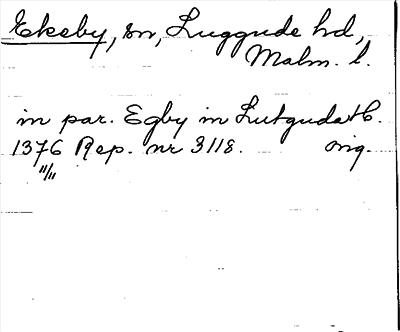 Ekeby, sn, Luggude hd,
Malm. l.
in par. Egby in Lutgudah.
1376 Rep. nr 3118. orig.
11/11